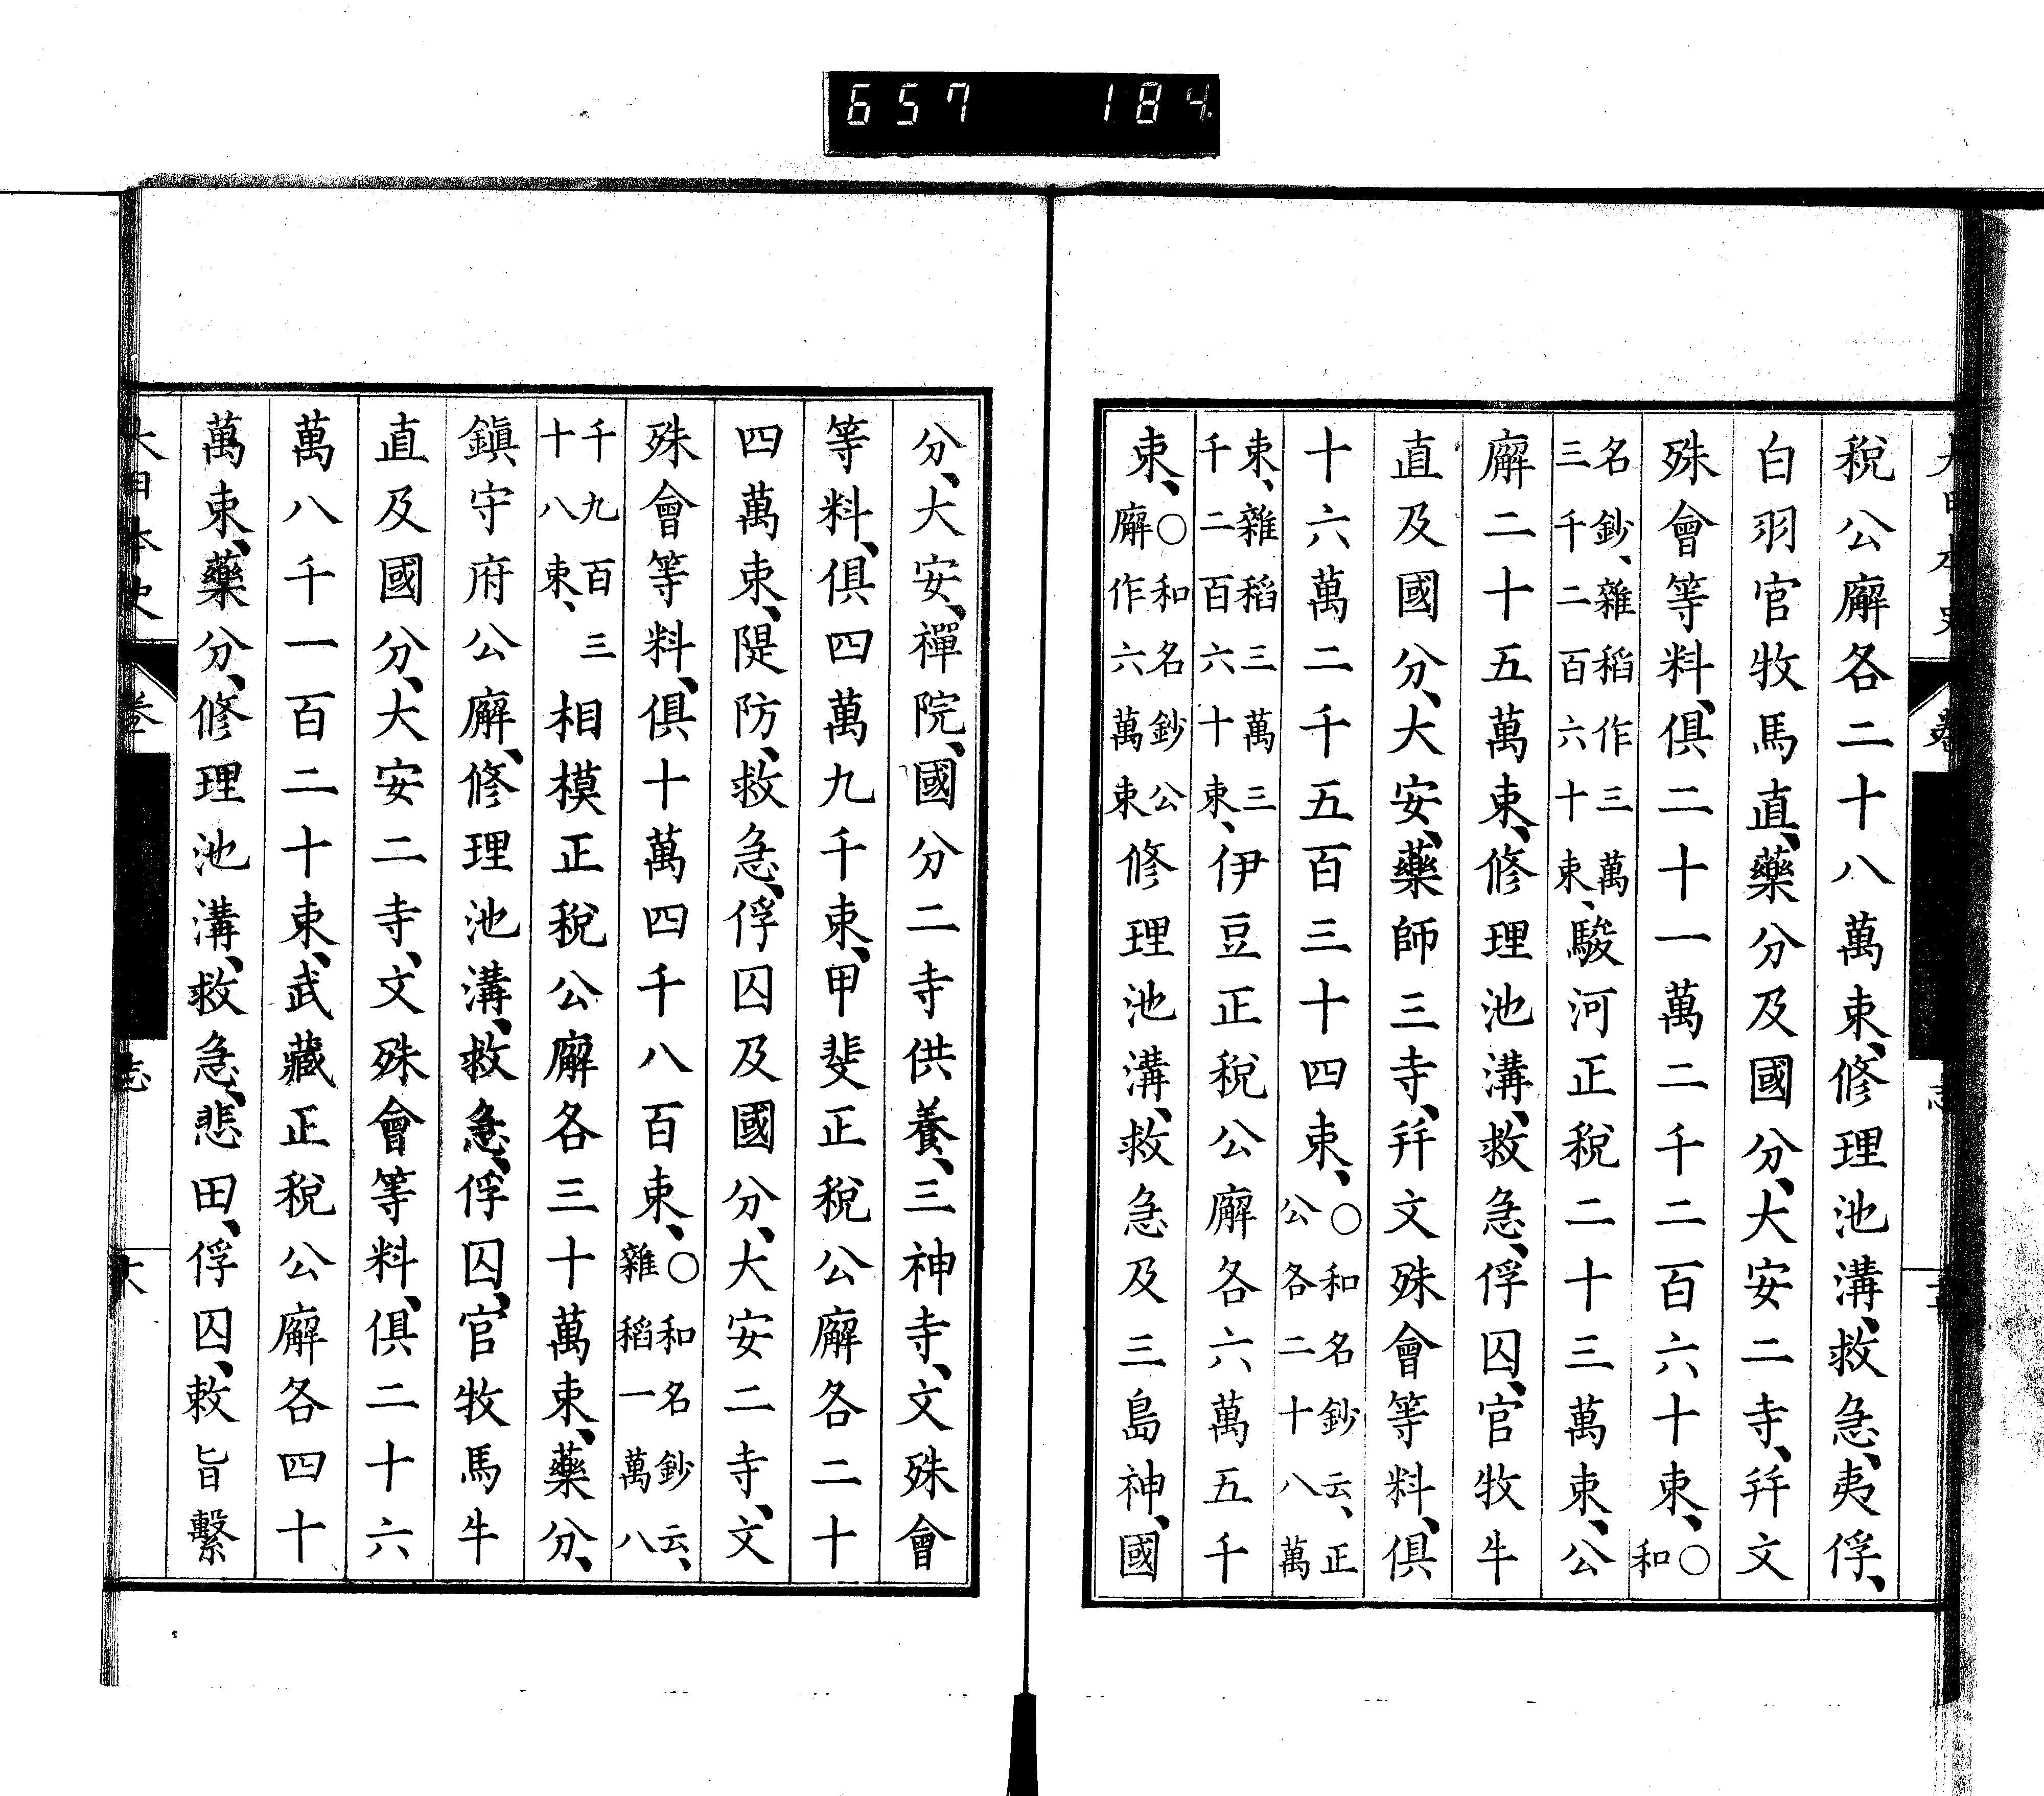 657 184
税公廨各二十八萬束、修理池溝、救急、夷俘、
白羽官牧馬直、藥分及國分、大安二寺、幷文
殊會等料、俱二十一萬二千二百六十束、○和
名鈔、雜稻作三萬三千二百六十束、駿河正税二十三萬束、公
廨二十五萬束、修理池溝、救急、俘囚、官牧牛
直及國分、大安、藥師三寺、幷文殊會等料、俱
十六萬二千五百三十四束、○和名鈔云、正公各二十八萬
束、雜稻三萬三千二百六十束、伊豆正税公廨各六萬五千
束、○和名鈔公廨作六萬束修理池溝、救急及三島神、國
分、大安、禪院、國分二寺供養、三神寺、文殊會
等料、俱四萬九千束、甲斐正税公廨各二十
四萬束、隄防、救急、俘囚及國分、大安二寺、文
殊會等料、俱十萬四千八百束、○和名鈔云、雜稻一萬八
千九百三十八束、相模正税公廨各三十萬束、藥分、
鎭守府公廨、修理池溝、救急、俘囚、官牧馬牛
直及國分、大安二寺、文殊會等料、俱二十六
萬八千一百二十束、武藏正税公廨各四十
萬束、藥分、修理池溝、救急、悲田、俘囚、敕旨繫
大日本史 卷 志